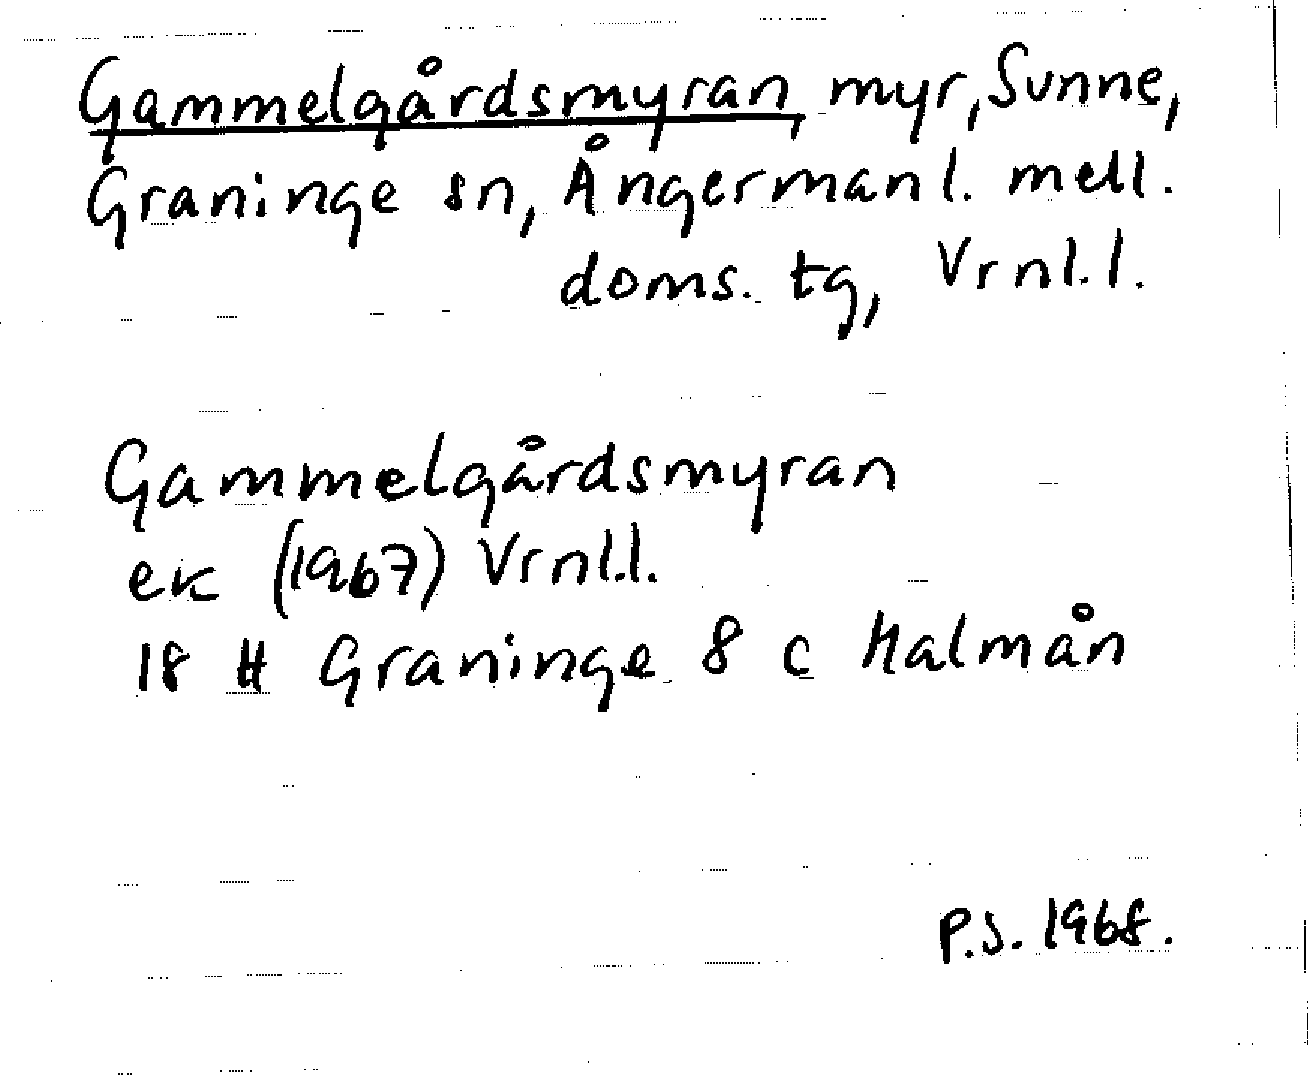 Gammelgårdsmyran, myr, Sunne,
Graninge sn, Ångermanl. mell.
doms. tg, Vrnl.l.
Gammelgårdsmyran
ek (1967) Vrnl.l.
18 H Graninge 8 c Halmån
P.S. 1968.